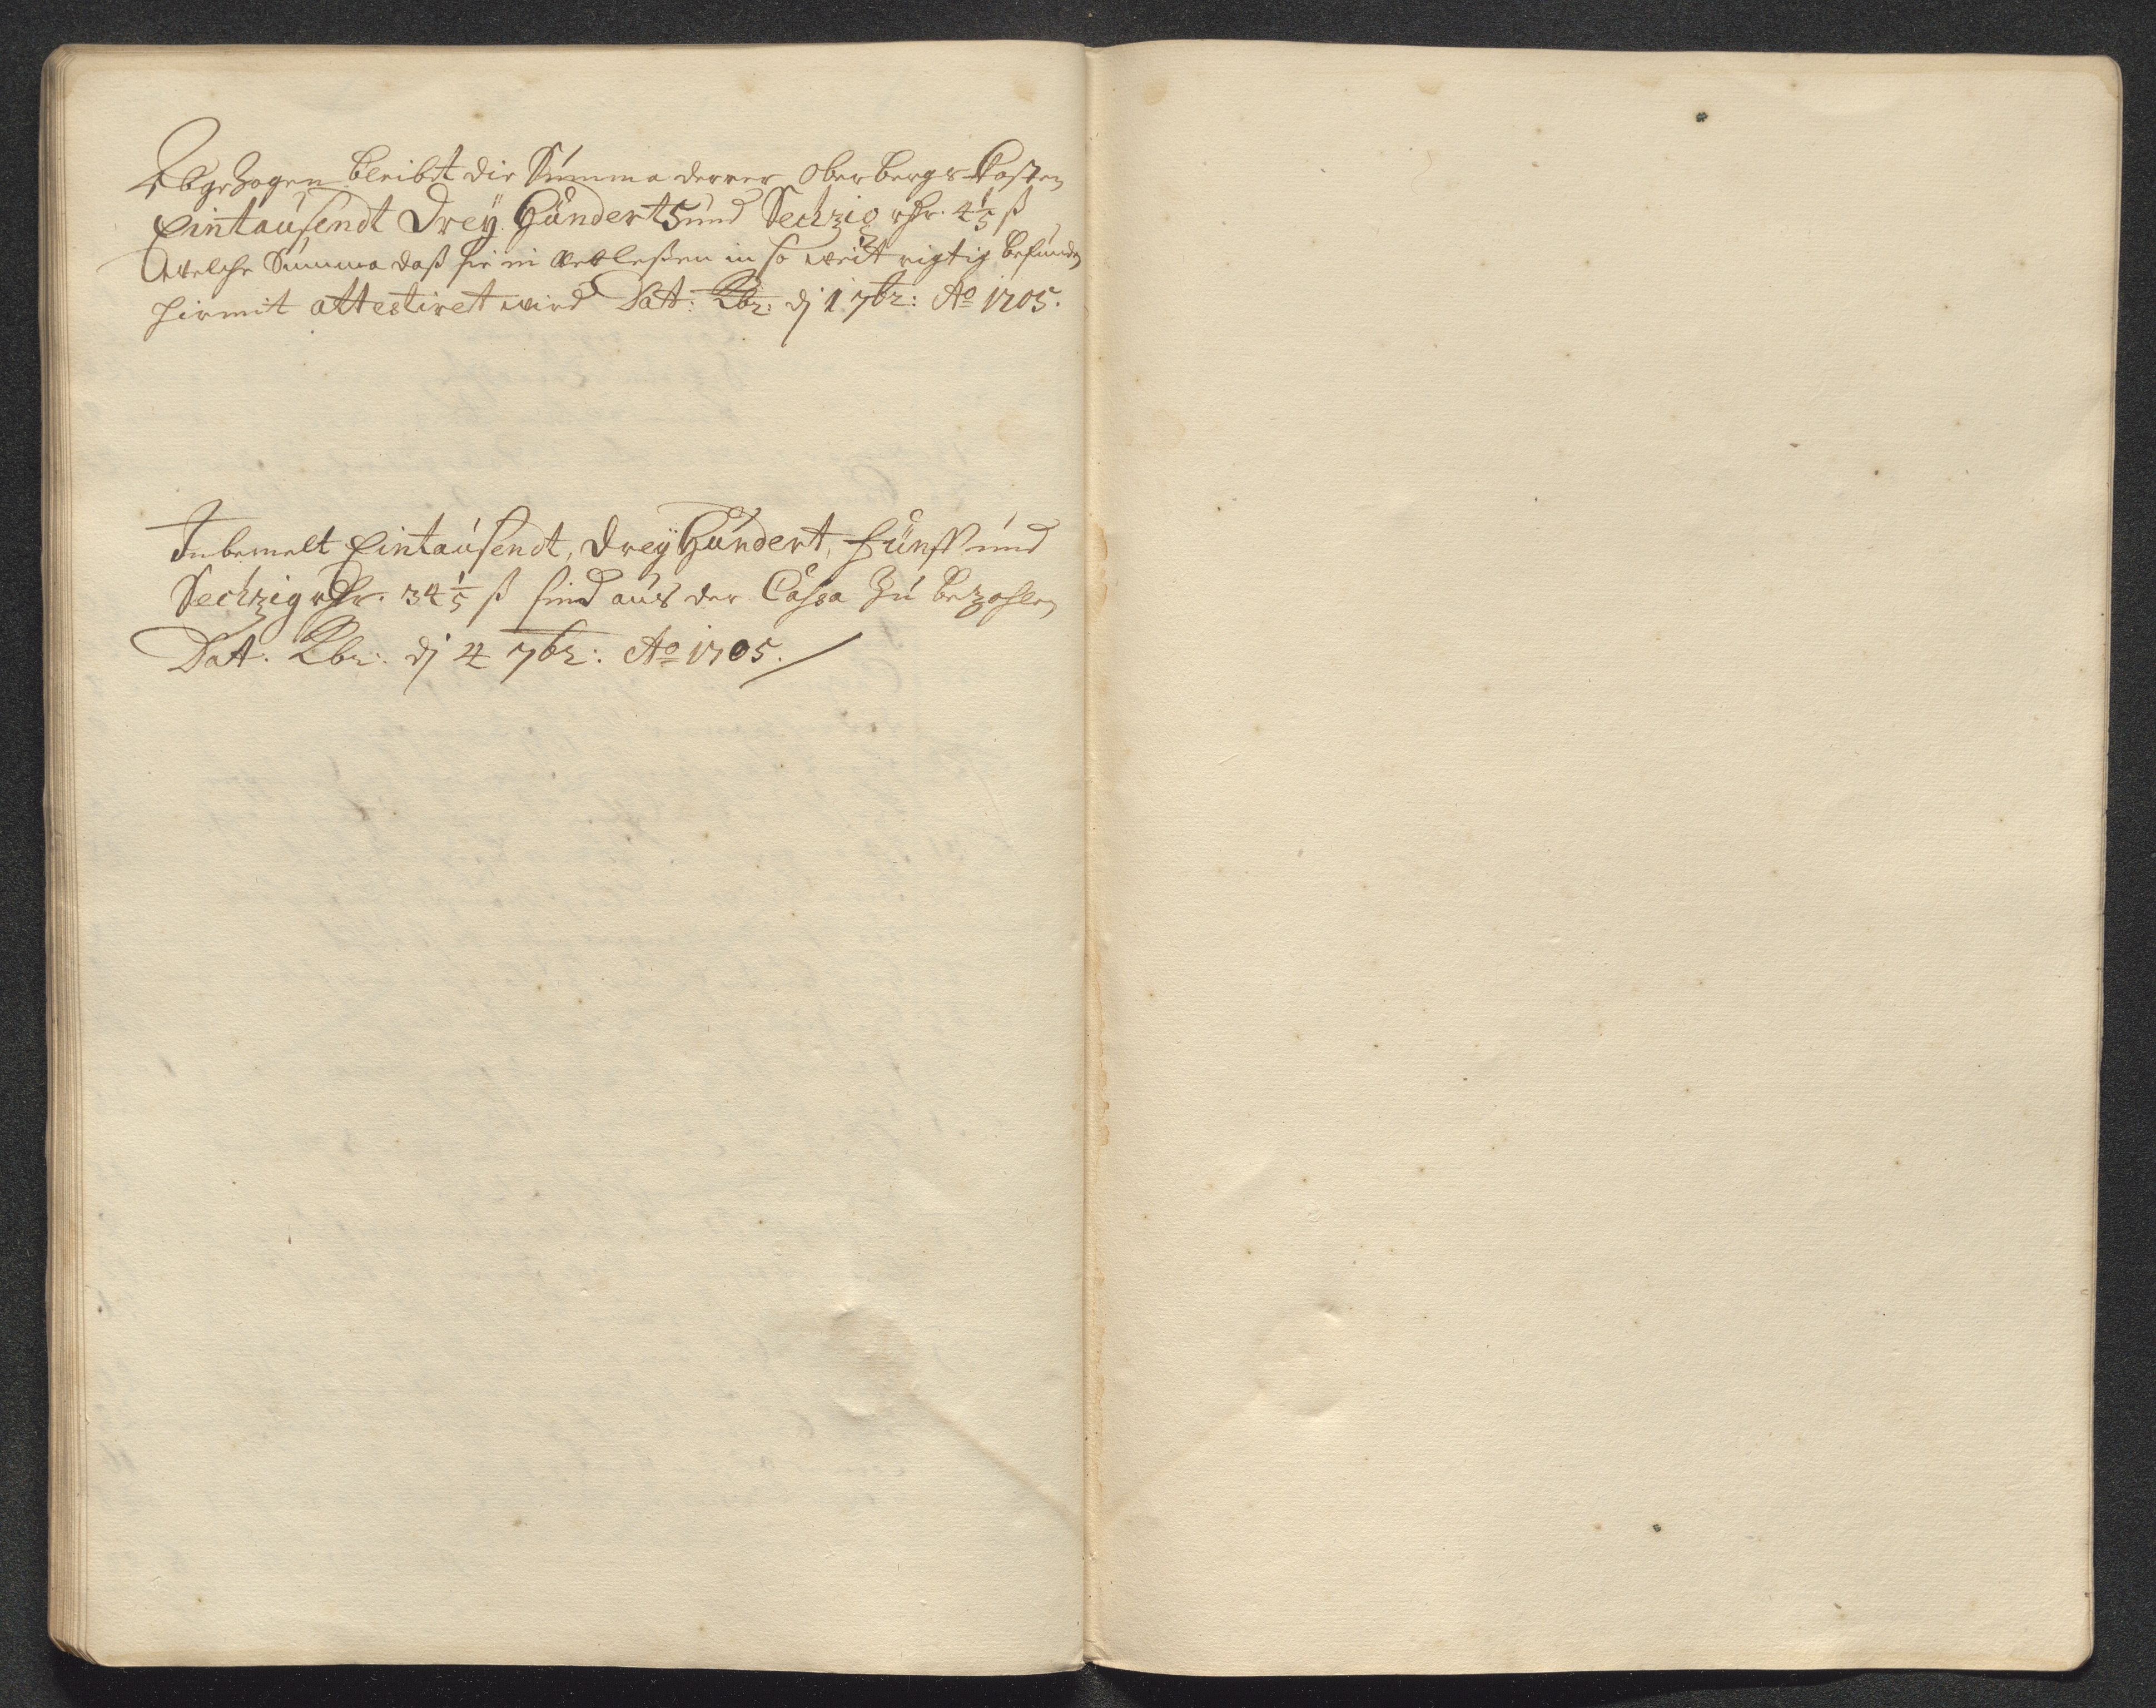 Abgezogen bleibt die Summa derer Oberbergs Kosten
Eintausendt Drey Hundert 5 und Sechzig rthr. 4⅕ ß
welche Summa daß sie in in so weit rigtig befunden
hirmit attestiret wird Dat: Kbr: dj 1 7br: Ao 1705.
Inbemelt Eintausendt, Drey Hundert, Fünff und
Sechzig rthr. 34⅕ ß sind aus der Cassa zu bezahlen
Dat. Kbr: dj 4 7br: Ao 1705.